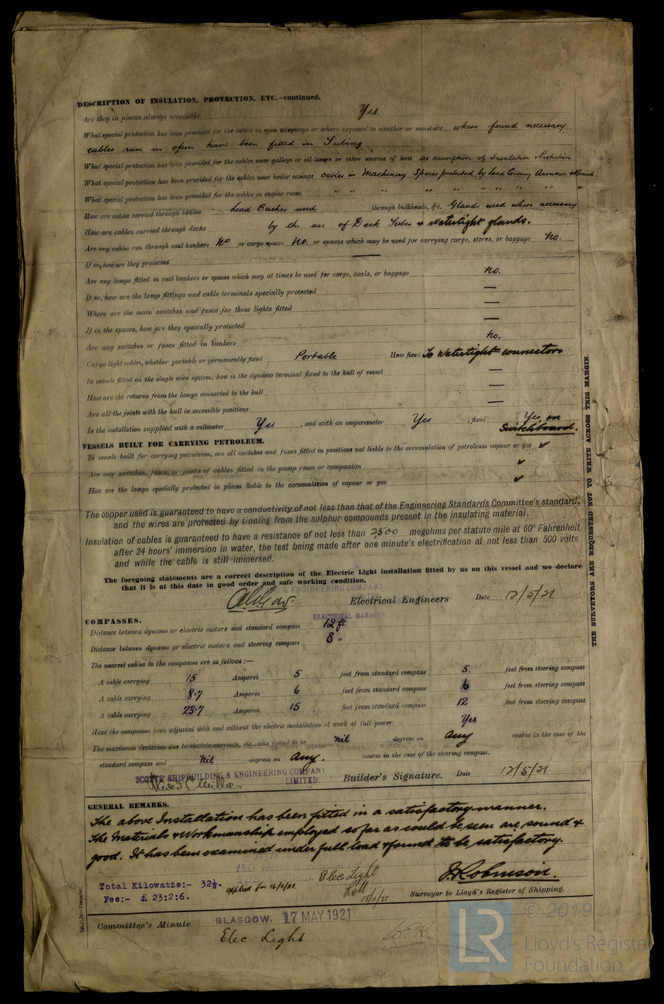 DESCRIPTION OF INSULATION, PROTECTION, ETC.—continued.
Are they in places always accessible Yes.
What special protection has been provided for the cables in open alleyways or where exposed to weather or moisture where found necessary
cables run in open have been fitted in Tubing.
What special protection has been provided for the cables near galleys or oil lamps or other sources of heat see description of Insulation Protection
What special protection has been provided for the cables near boiler casings cables in Machinery Spaces protected by lead covering Armour & Braid
What special protection has been provided for the cables in engine room " " " " " " " "
How are cables carried through beams lead Bushes used through bulkheads, &c. Glands used where necessary
How are cables carried through decks by the use of Deck Tubes & Watertight glands.
Are any cables run through coal bunkers No or cargo spaces No. or spaces which may be used for carrying cargo, stores, or baggage No.
If so, how are they protected
Are any lamps fitted in coal bunkers or spaces which may at times be used for cargo, coals, or baggage No.
If so, how are the lamps fittings and cable terminals specially protected —
Where are the main switches and fuses for these lights fitted —
If in the spaces, how are they specially protected —
Are any switches or fuses fitted in bunkers No.
Cargo light cables, whether portable or permanently fixed Portable How fixed To Watertight connectors
In vessels fitted on the single wire system, how is the dynamo terminal fixed to the hull of vessel —
How are the returns from the lamps connected to the hull —
Are all the joints with the hull in accessible positions —
Is the installation supplied with a voltmeter Yes , and with an amperemeter Yes , fixed Yes on
Switchboard.
VESSELS BUILT FOR CARRYING PETROLEUM.
In vessels built for carrying petroleum, are all switches and fuses fitted in positions not liable to the accumulation of petroleum vapour or gas ✓
Are any switches, fuses, or joints of cables fitted in the pump room or companion ✓
How are the lamps specially protected in places liable to the accumulation of vapour or gas ✓
The copper used is guaranteed to have a conductivity of not less than that of the Engineering Standards Committee's standard,
and the wires are protected by tinning from the sulphur compounds present in the insulating material.
Insulation of cables is guaranteed to have a resistance of not less than 2500 megohms per statute mile at 60° Fahrenheit
after 24 hours' immersion in water, the test being made after one minute's electrification at not less than 500 volts
and while the cable is still immersed.
The foregoing statements are a correct description of the Electric Light installation fitted by us on this vessel and we declare
that it is at this date in good order and safe working condition.
& ENGINEERING COMPANY
Electrical Engineers Date 12/5/21
ELECTRICAL MANAGER
COMPASSES.
Distance between dynamo or electric motors and standard compass 12 ft
Distance between dynamo or electric motors and steering compass 8 "
The nearest cables to the compasses are as follows:—
A cable carrying 15 Amperes 5 feet from standard compass 5. feet from steering compass
A cable carrying 8.7 Amperes 6 feet from standard compass 6 feet from steering compass
A cable carrying 23.7 Amperes 15 feet from standard compass 12 feet from steering compass
Have the compasses been adjusted with and without the electric installation at work at full power Yes
The maximum deviation due to electric currents, etc., was found to be Nil degrees on Any course in the case of the
standard compass and Nil degrees on Any. course in the case of the steering compass.
SCOTTS' SHIPBUILDING & ENGINEERING COMPANY
LIMITED. Builder's Signature. Date 12/5/21.
GENERAL REMARKS.
The above Installation has been fitted in a satisfactory manner.
The Materials & Workmanship employed so far as could be seen are sound &
good. It has been examined under full load & found to be satisfactory.
Elec Light
J. Robinson.
Total Kilowatts:- 32½.
Fee:- £ 23:2:6.
Surveyor to Lloyd's Register of Shipping.
Committee's Minute GLASGOW. 17 MAY 1921
Elec. Light
THE SURVEYORS ARE REQUESTED NOT TO WRITE ACROSS THIS MARGIN
LR
© 2019
Lloyd's Register
Foundation